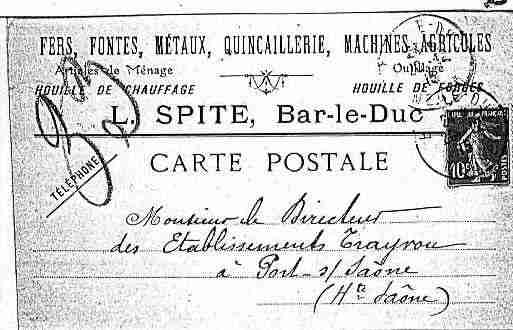 FERS, FONTES, MÉTAUX, QUINCAILLERIE, MACHINES AGRICOLES
Articles de Ménage Outillage
HOUILLE DE CHAUFFAGE HOUILLE DE FORGES
L. SPITE, Bar-le-Duc
TÉLÉPHONE
CARTE POSTALE
10c
Monsieur le Directeur
des Etablissements Trayvou
à Port-s/Saône
(Hte Saône)